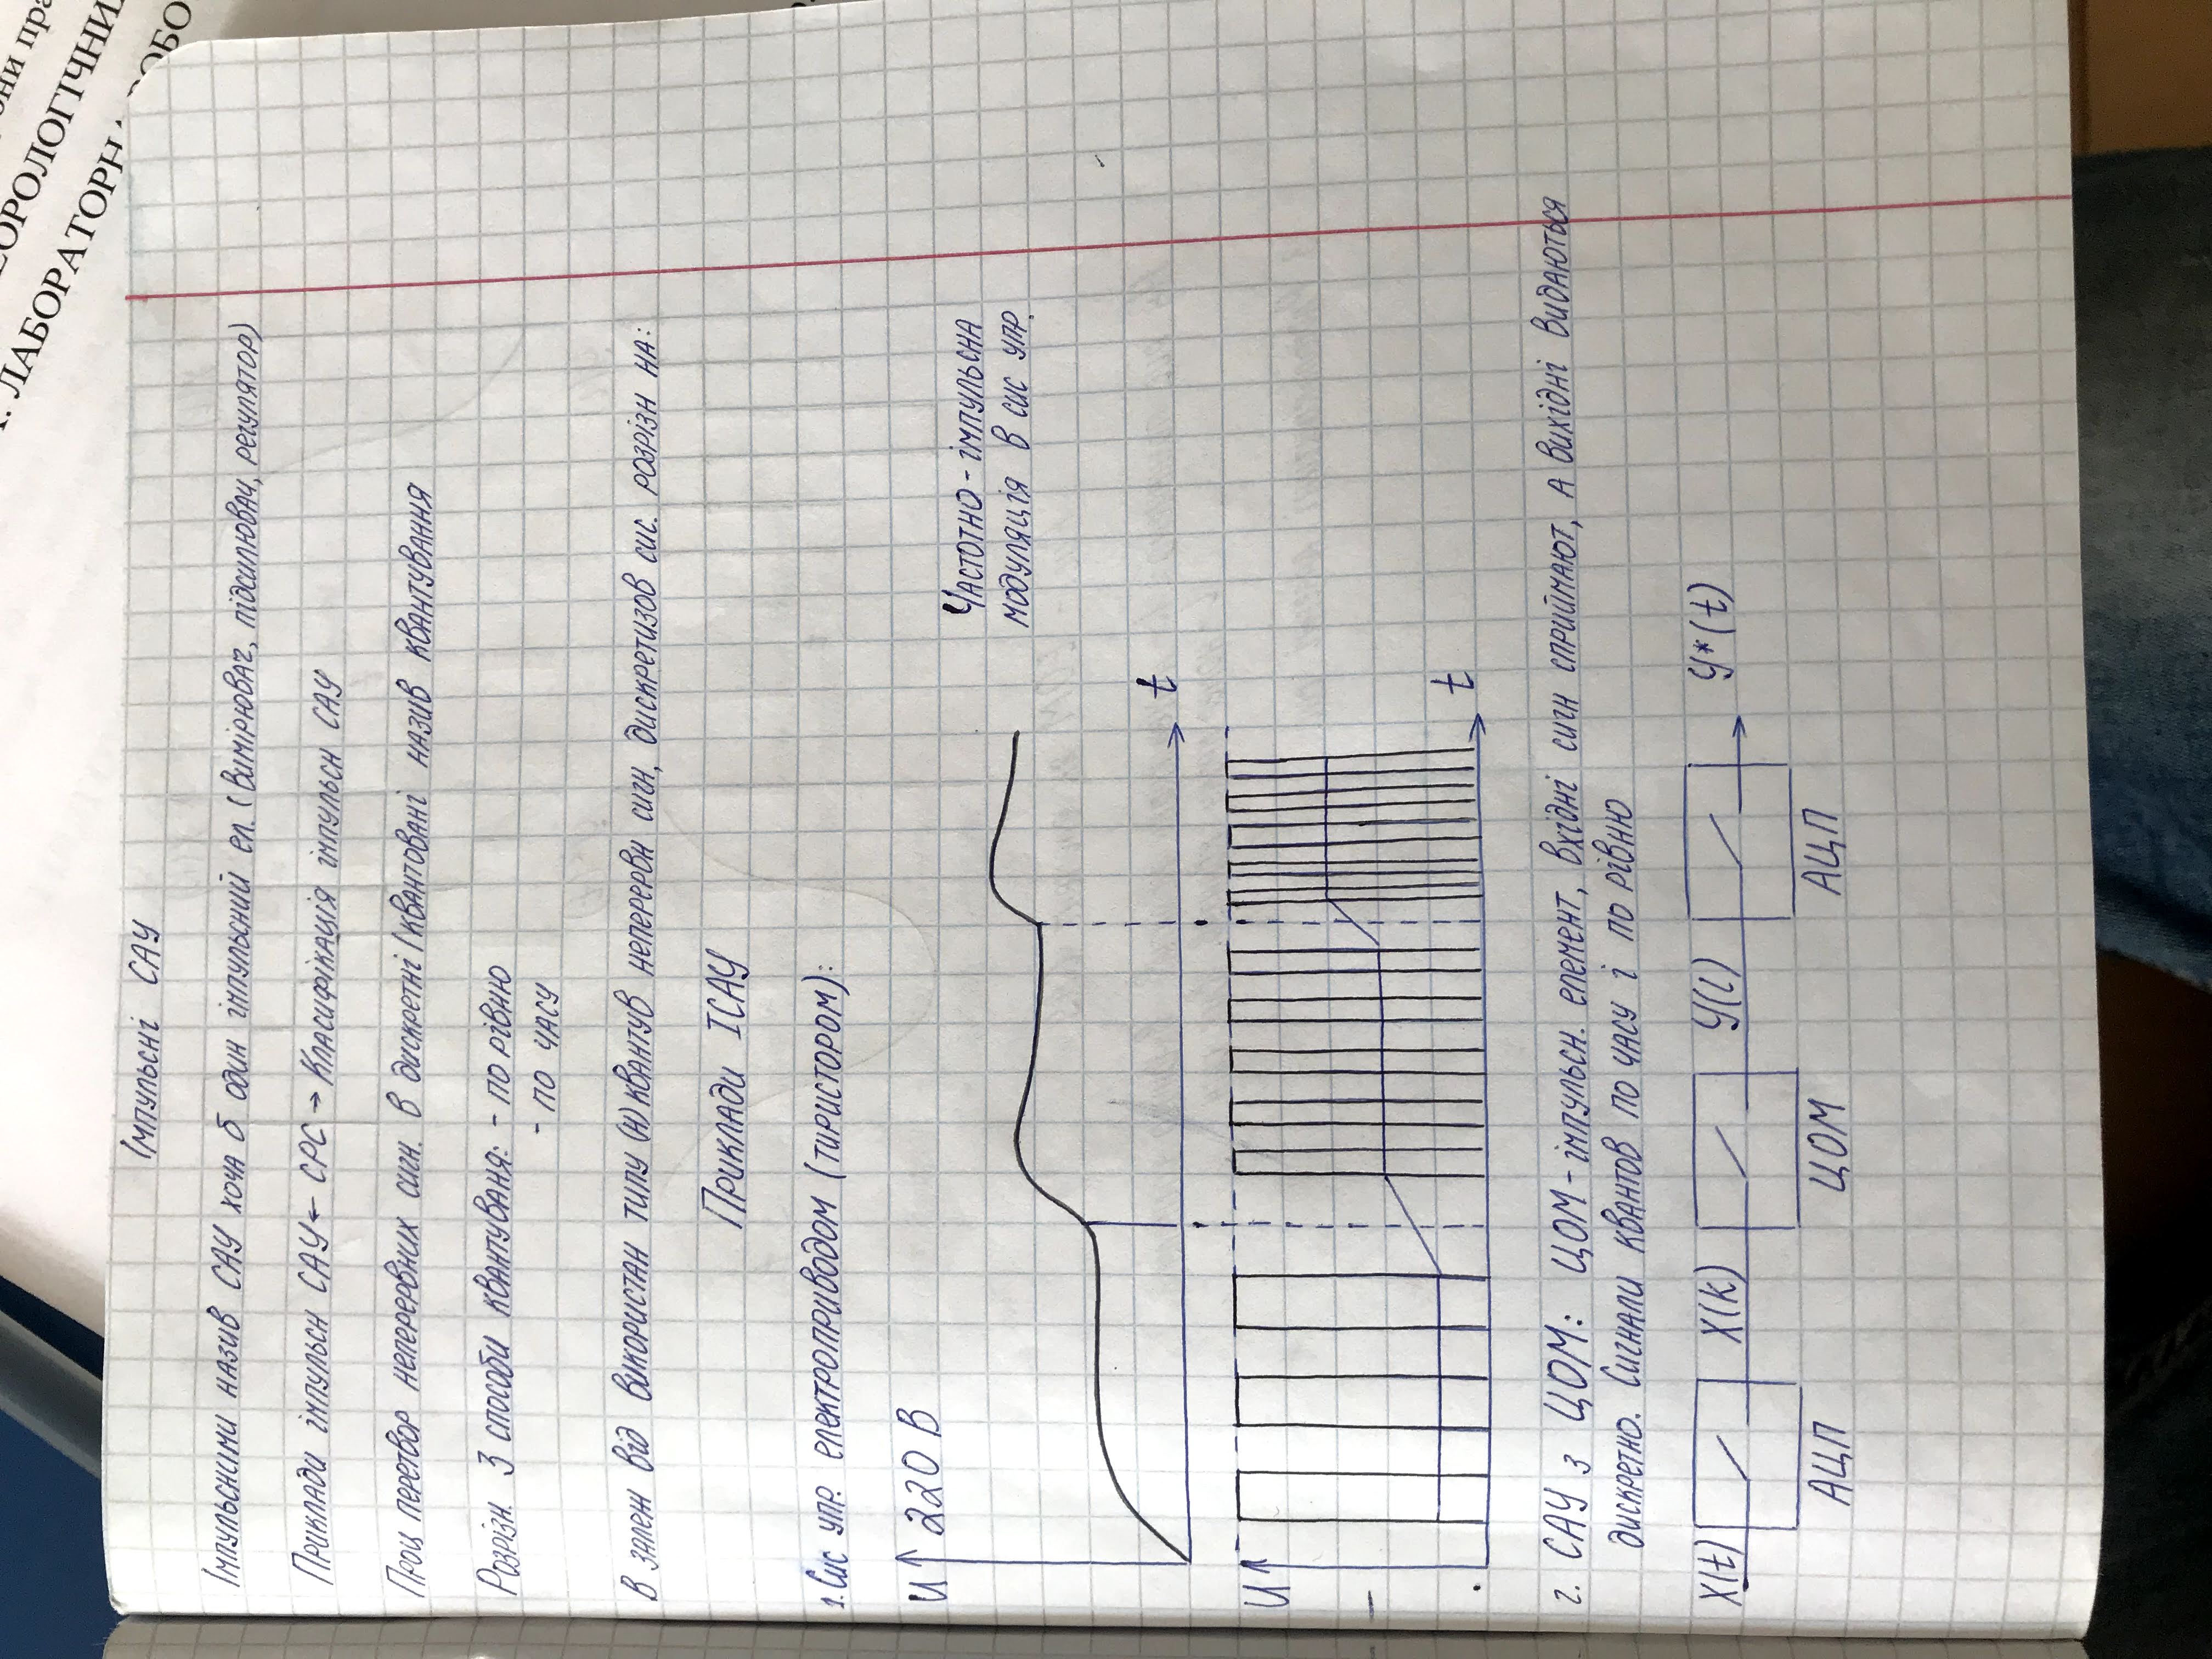 они пра
ЕОРОЛОГІЧНИ
ЛАБОРАТОРН
ОБО
Імпульсні САУ
Імпульсними назив САУ хоча б один імпульсний ел. (вимірювач, підсилювач, регулятор)
Приклади імпульсн САУ ← СРС → Класифікація імпульсн САУ
Проц перетвор неперервних сигн. в дискретні / квантовані назив квантування
Розрізн. 3 способи квантуваня: - по рівню
- по часу
В залеж від використан типу (н) квантув неперервн сигн, дискретизов сис. розрізн на:
Приклади ІСАУ
1. Сис упр. електроприводом (тиристором):
U 220 В
Частотно-імпульсна
модуляція в сис упр.
t
U
t
2. САУ з ЦОМ: ЦОМ - імпульсн. елемент, вхідні сигн сприймают, а вихідні видаються
дискретно. Сигнали квантов по часу і по рівню
X(t) X(k) Y(l) Y*(t)
АЦП ЦОМ АЦП